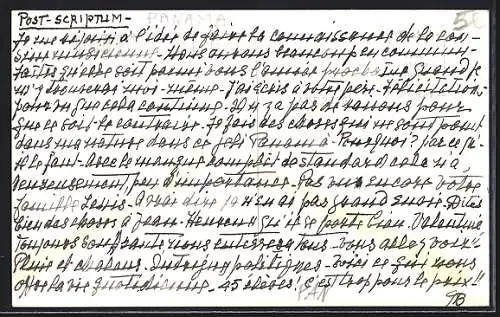 POST-SCRIPTUM - PANAMA 50
Je me réjouis à l'idée de faire la connaissance de la
musicienne. Nous aurons beaucoup en commun.
Faites qu'elle soit parmi vous l'année prochaine quand je
m'y trouverai moi-même. J'ai écris à votre père. Félicitations,
pour vu que cela continue. Il n'y a pas de raisons pour
que ce soit le contraire. Je fais des choses qui ne sont point
dans ma nature dans ce joli Panama. Pourquoi? parce qu'
il le faut. Avec le manque complet de standard cela n'a,
heureusement, peu d'importance. Pas vu encore votre
famille Lewis. A vrai dire je n'en ai pas grand envie. Dites
bien des choses à Jean-Henri. Qu'il se porte bien. Valentine,
toujours souffrante nous enterrera tous. Vous allez voir!
Pluie et chaleur. Intrigues politiques. Voici ce qui nous
offre la vie quotidienne. 45 élèves! C'est trop pour le prix!!
PAN